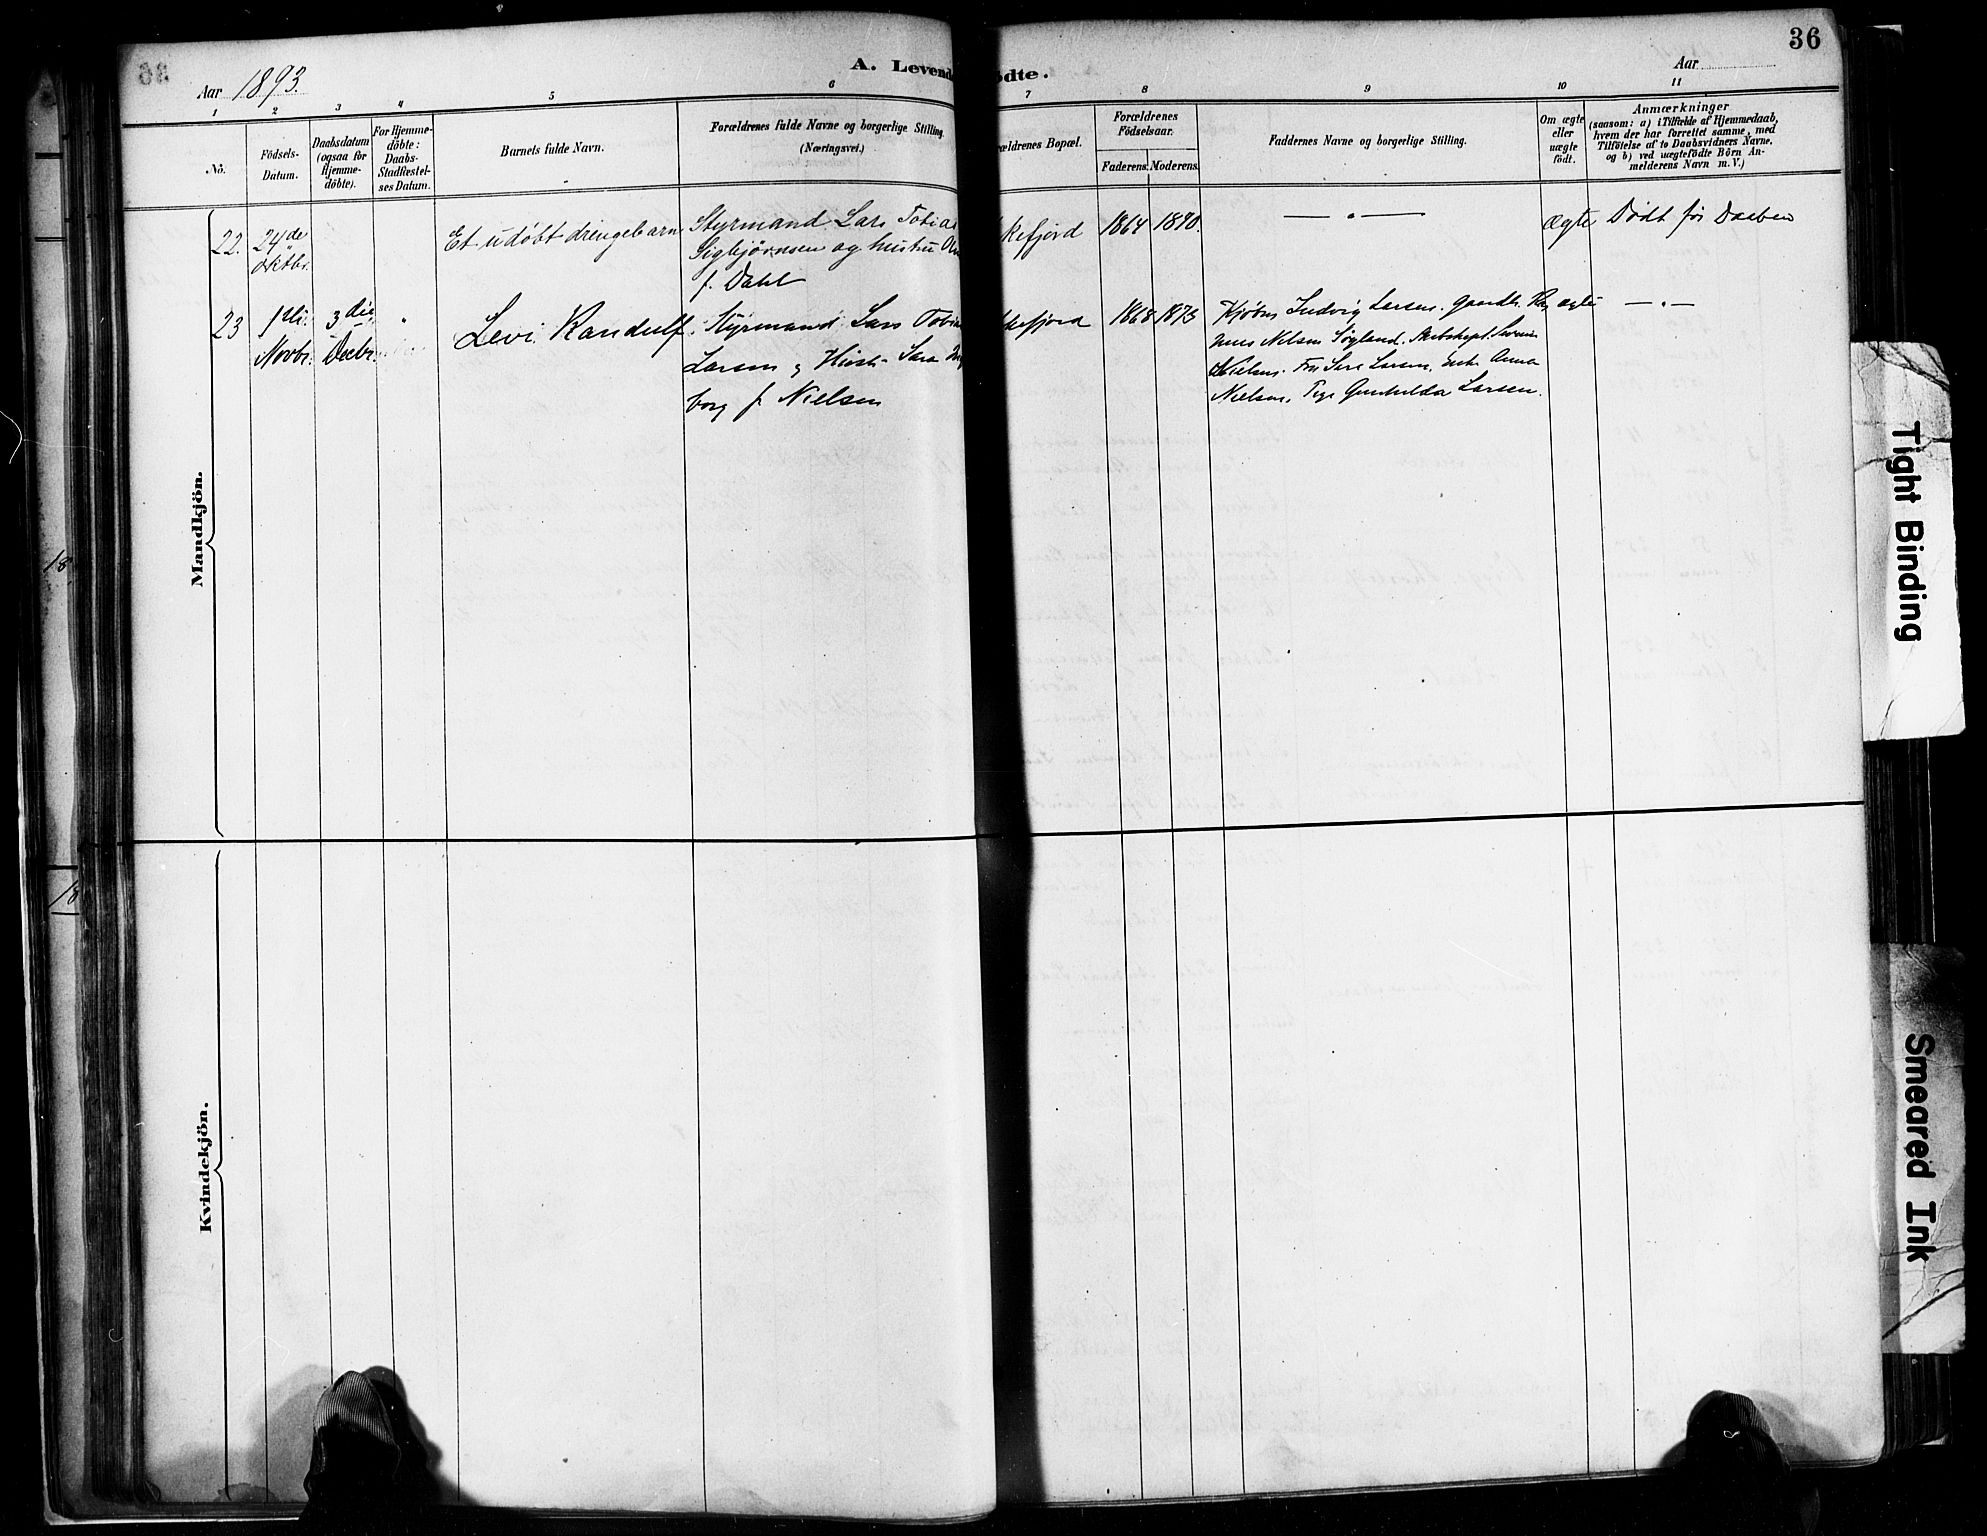 36
Aar 1893.
A. Levende
ødte.
Aar
1 2 3 4 5 6 7 8 9 10 11
No.
Födsels-
Datum.
Daabsdatum
(ogsaa for
Hjemme-
döbte).
For Hjemme-
döbte:
Daabs-
Stadfæstel-
ses Datum.
Barnets fulde Navn.
Forældrenes fulde Navne og borgerlige Stilling.
(Næringsvei.)
ældrenes Bopæl.
Forældrenes
Födselsaar.
Faderens. Moderens.
Faddernes Navne og borgerlige Stilling.
Om ægte
eller
uægte
födt.
Anmærkninger
(saasom: a) i Tilfælde af Hjemmedaab,
hvem der har forrettet samme, med
Tilföielse af to Daabsvidners Navne,
og b) ved uægtefödte Börn An-
melderens Navn m. V.)
Mandkjön.
22.
24de
Oktbr.
Et udøbt drengebarn
Styrmand Lars Tobias
Sigbjørnsen og hustru
f. Dahl
kefjord
1864
1870.
— " —
Ægte
Dødt før Daaben
23
1ste
Novbr.
3die
Decbr.
"
Levi Randulf
Styrmand Lars Tobias
Larsen og Hustr. Sara
borg f. Nielsen
kefjord
1868
1873
Kjøbm Ludvig Larsen. Gaardb. Ras
mus Nielsen Søyland. Skibskapt.
Nielsen. Fru Larsen, Anna
Nielsen. Pige Gunhilda Larsen.
ægte
— " —
Kvindekjön.
18
18
Tight Binding
Smeared Ink